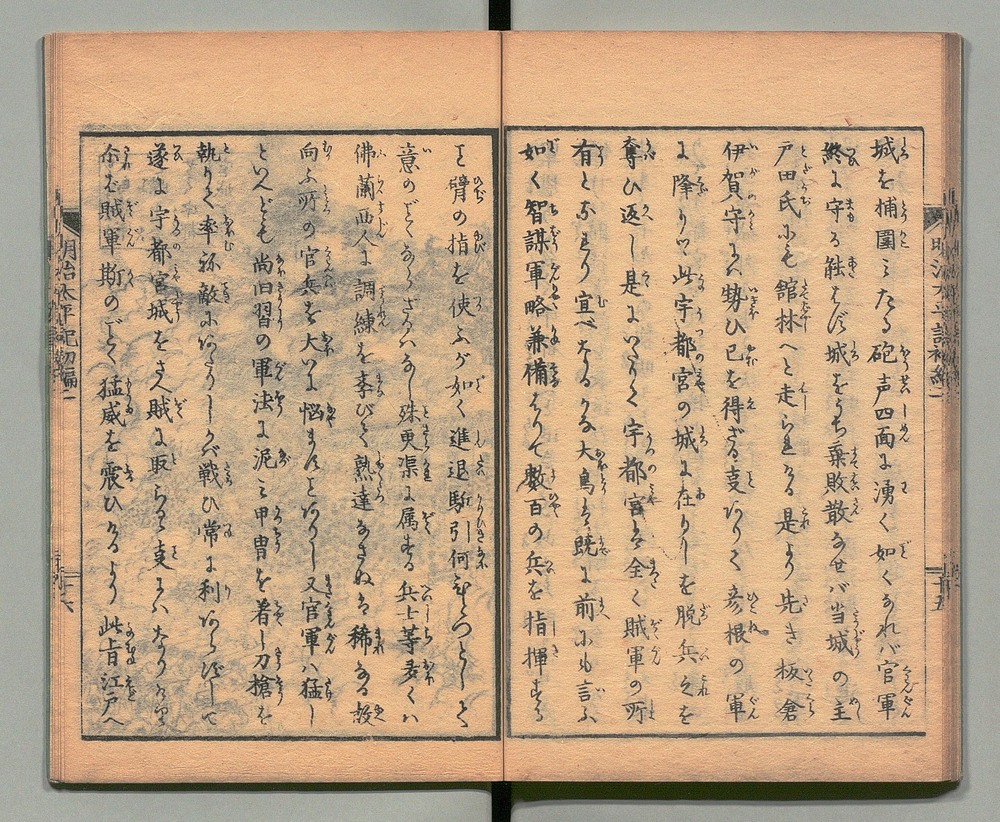 城を捕圍ミたる砲声四面に湧く如くなれバ官軍
終に守る能はず城をうち棄敗散なせバ当城の主
戸田氏にも舘林へと走らるる是より先き板倉
伊賀守にハ勢ひ已を得ざる支ありて彦根の軍
に降りて此宇都宮の城に在りしを脱兵之を
奪ひ返し是にいたりて宇都宮は全く賊軍の所
有となれり宜べなるかな大鳥は既に前にも言ふ
如く智謀軍略兼備はりて數百の兵を指揮する
と臂の指を使ふが如く進退駈引何
意のごとくならざるハなし殊更渠に属する兵士等多くハ
佛蘭西人に調練を李びて熟達なさぬは稀なる故
向ふ所の官兵を大いに悩ませしとありし又官軍ハ猛し
といへども尚旧習の軍法に泥ミ甲冑を着し刀槍を
執りて率ね敵にあたりしかバ戦ひ常に利あらずして
遂に宇都宮城をさへ賊に取らるる支にハなりけり
尓ば賊軍斯のごとく猛威を震ひけるより此旨江戸へ
明治太平記初編一
十五
十六